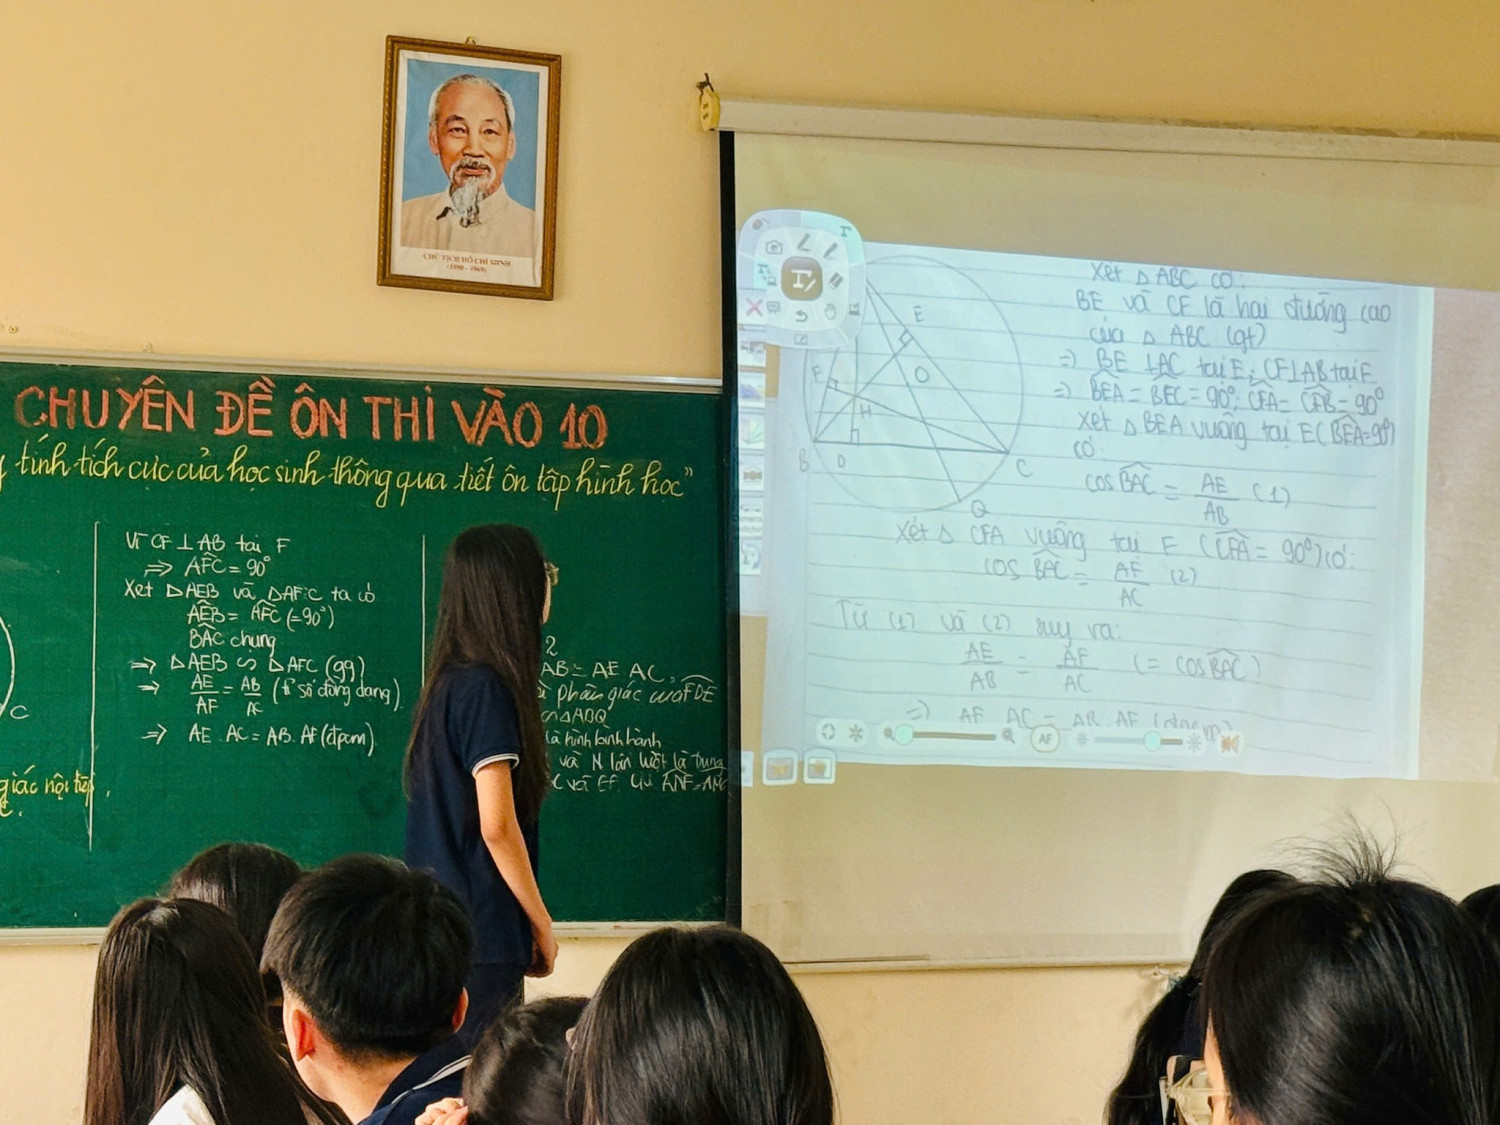 CHỦ TỊCH HỒ CHÍ MINH
(1890 - 1969)
CHUYÊN ĐỀ ÔN THI VÀO 10
tính tích cực của học sinh thông qua tiết ôn tập hình học"
Vì CF ⊥ AB tại F
=> AFC = 90°
Xét △AEB và △AFC ta có
AEB = AFC (=90°)
BAC chung
=> △AEB ∽ △AFC (gg)
=> AE/AF = AB/AC (tỉ số đồng dạng)
=> AE . AC = AB. AF (đpcm)
C
giác nội tiếp
2
AB = AE AC,
phân giác của FDE
∽△ABQ
là hình bình hành
và N lần lượt là trung
C và EF.
E
O
F
H
B
D
C
Q
Xét △ ABC có:
BE và CF là hai đường cao
của △ ABC (gt)
=> BE ⊥AC tại E; CF⊥AB tại F
=> BEA = BEC = 90°; CFA = CFB = 90°
Xét △ BEA vuông tại E (BEA=90°)
có:
cos BAC = AE/AB (1)
Xét △ CFA vuông tại F (CFA = 90°) có:
cos BAC = AF/AC (2)
Từ (1) và (2) suy ra:
AE/AB = AF/AC (= cos BAC)
=> AE AC = AB. AF (đpcm)
AF